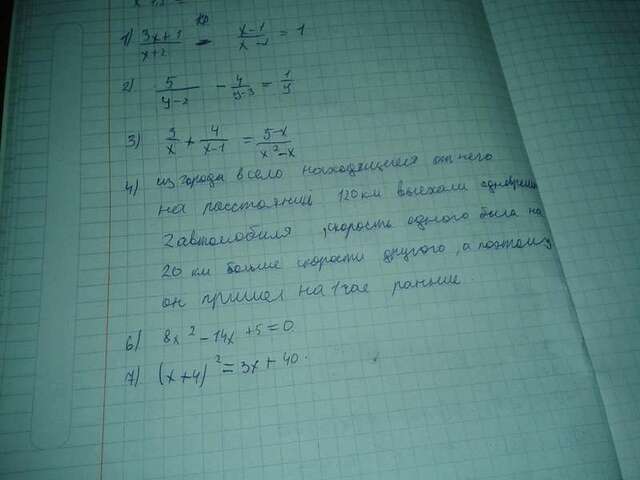 1) (3x+1)/(x+2) - (x-1)/(x-2) = 1
2) 5/(y-2) - 4/(y-3) = 1/y
3) 3/x + 4/(x-1) = (5-x)/(x²-x)
4) из города в село находящиеся от него
на расстоянии 120 км выехали одновремен
2 автомобиля, скорость одного была на
20 км больше скорости другого, а поэтому
он пришел на 1 час раньше.
6) 8x² - 14x + 5 = 0
7) (x+4)² = 3x + 40.